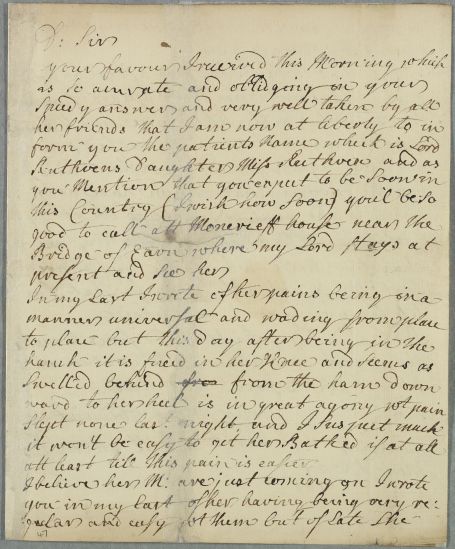 D: Sir
your favour I received this Morning which
is so acurate and oblidging in your
Speedy answer and very well taken by all
her friends that I am now at liberty to in
form you the patients Name which is Lord
Ruthvens Daughter Miss Ruthven and as
you Mention that you expect to be soon in
this Country (I wish how soon) you'l be so
good to call att Moncrieff house near the
Bridge of Earn where my Lord stays at
present and see her
In my Last I write of her pains being in a
manner universal and wading from place
to place but this day after being in the
hanch it is fixed in her Knee and seems as
Swelled behind from the ham down
ward to her heel is in great agony wt pain
Slept none last night and I suspect much
it won't be easy to get her Bathed if at all
att least till this pain is easier
I believe her M: are just coming on I wrote
you in my last of her having being very re:
gular and easy wt them but of Late She